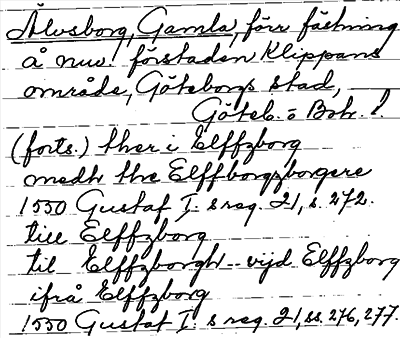 Älvsborg, Gamla, förr fästning
å nuv. förstaden Klippans
område, Göteborgs stad,
Göteb. o Boh. l.
(forts.) ther i Elffzborg
medh the Elffborgzborgere
1550 Gustaf I:s reg. 21, s. 272.
till Elffzborg
til Elffzborgh - vijd Elffzborg
ifrå Elffzborg
1550 Gustaf I:s reg. 21, ss. 276, 277.